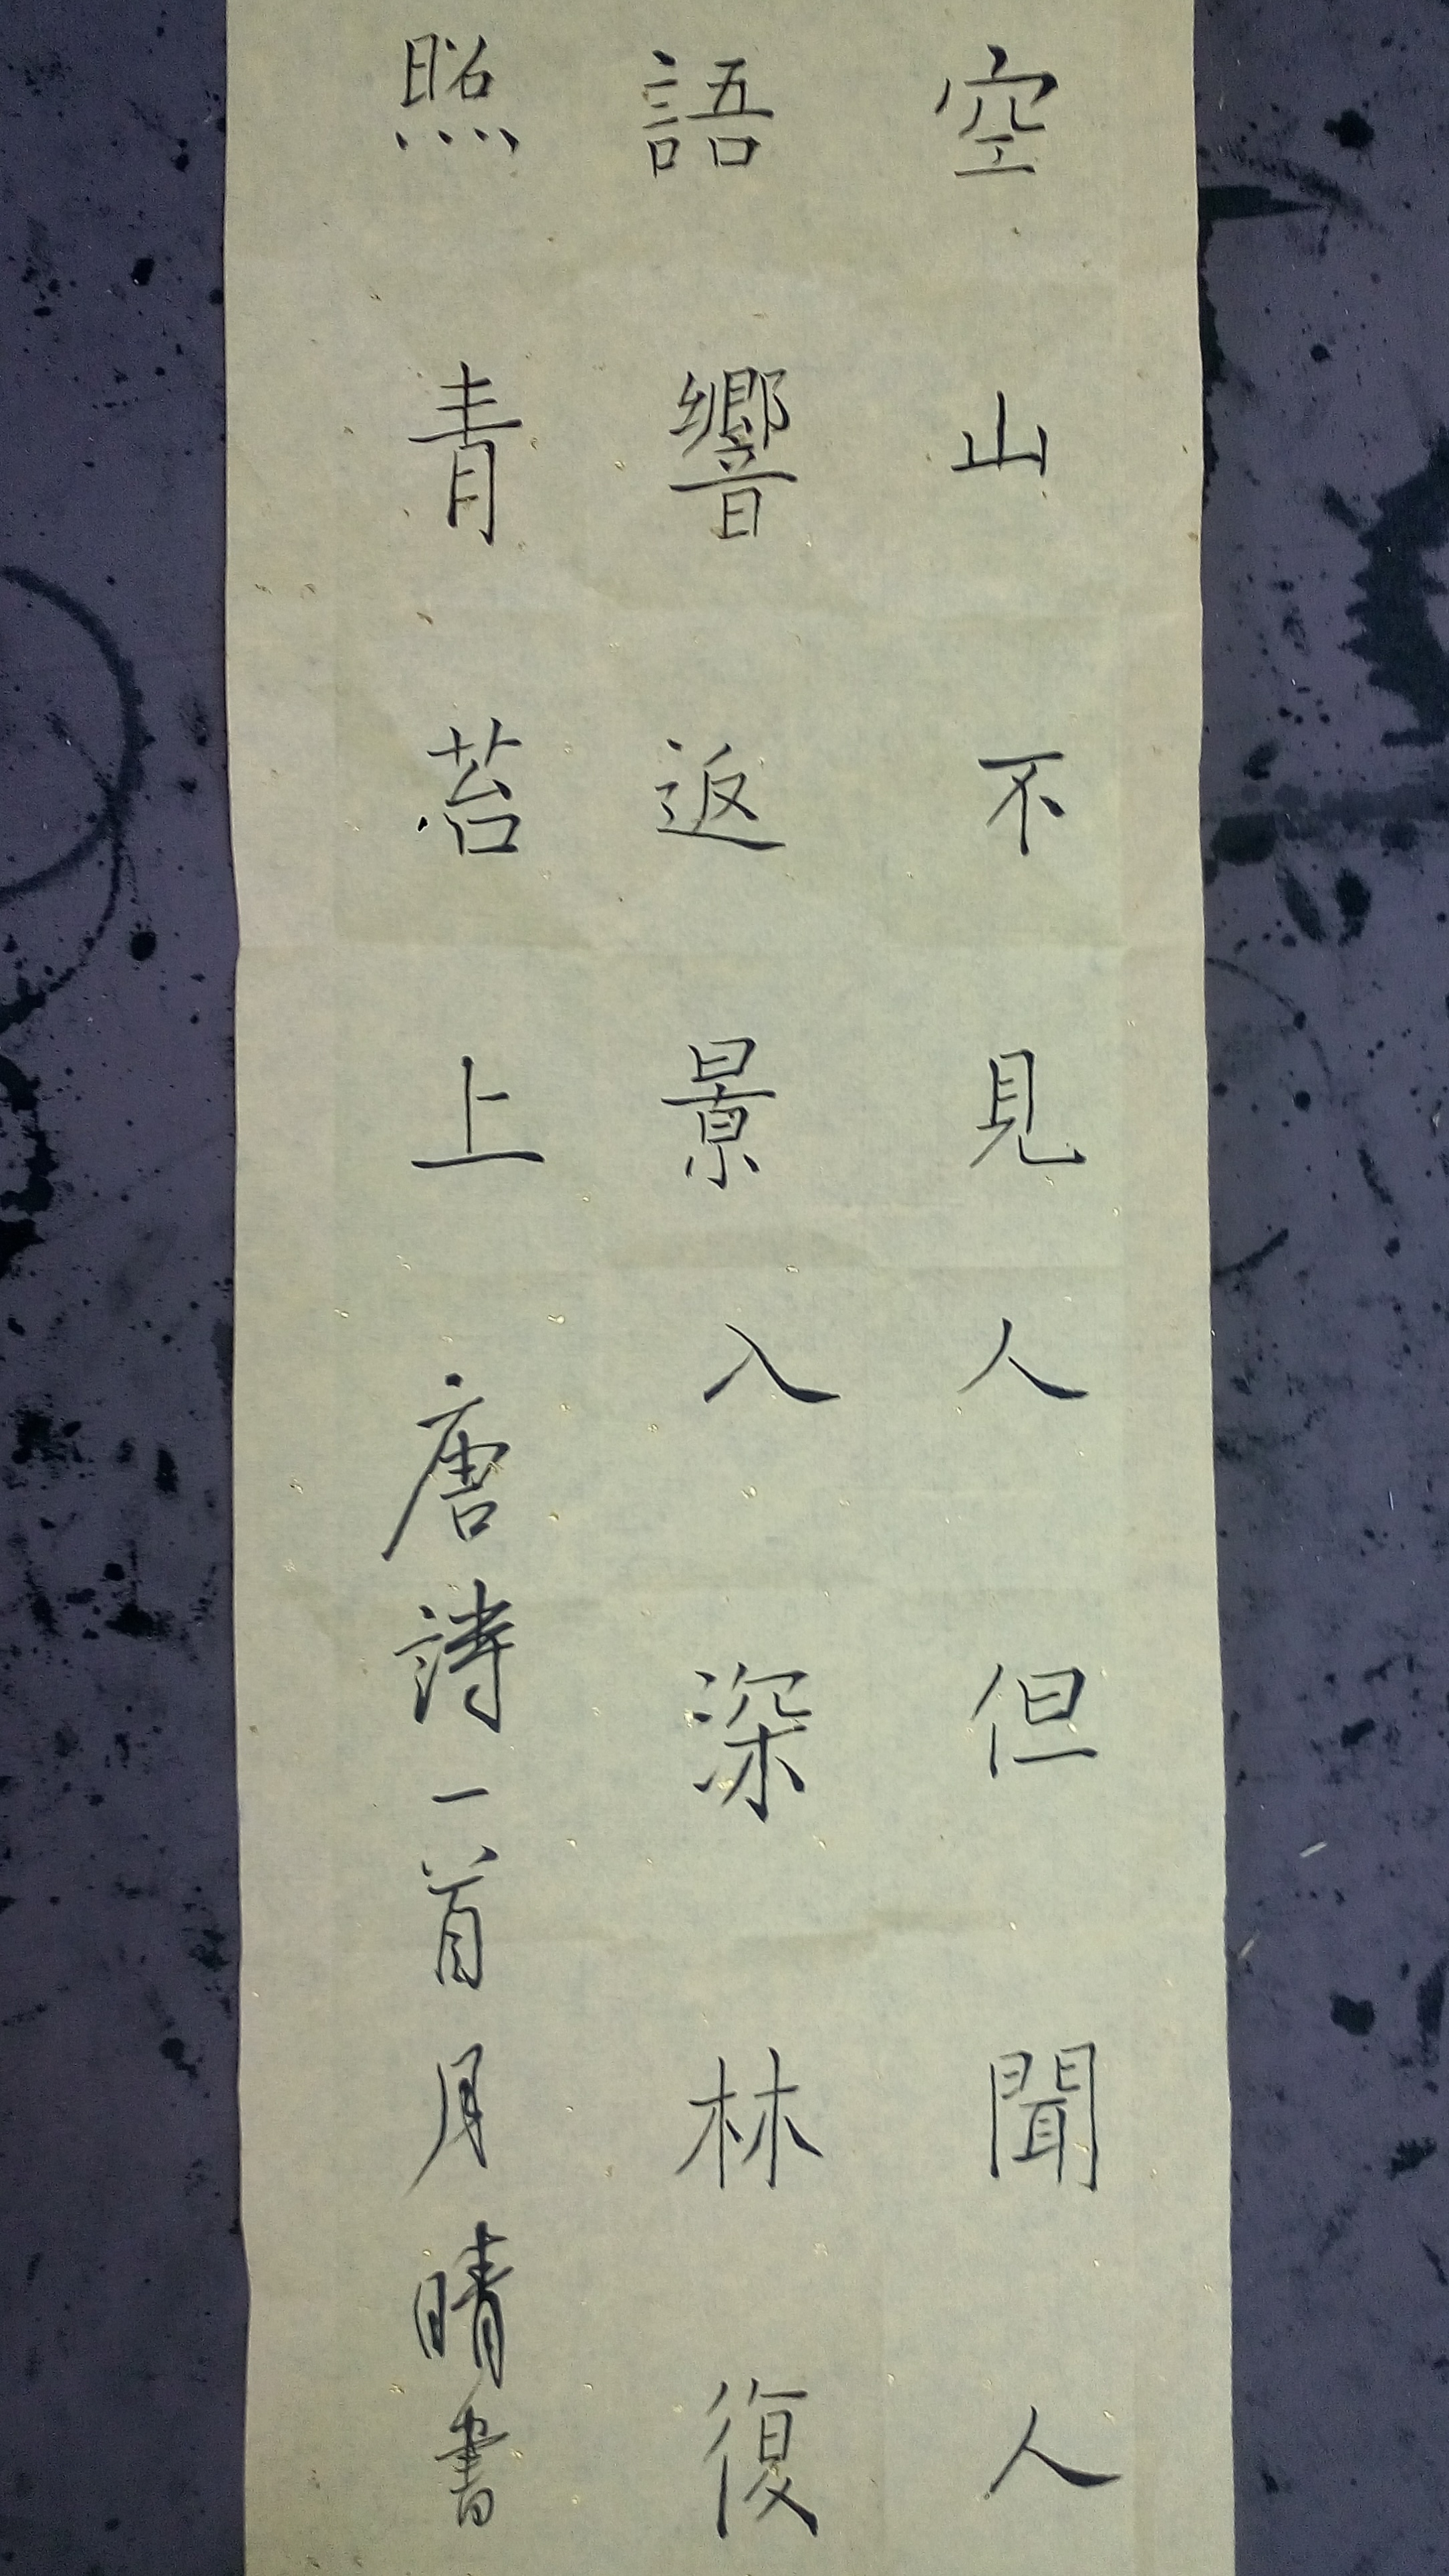 空山不見人但聞人
語響返景入深林復
照青苔上唐詩一首月晴書